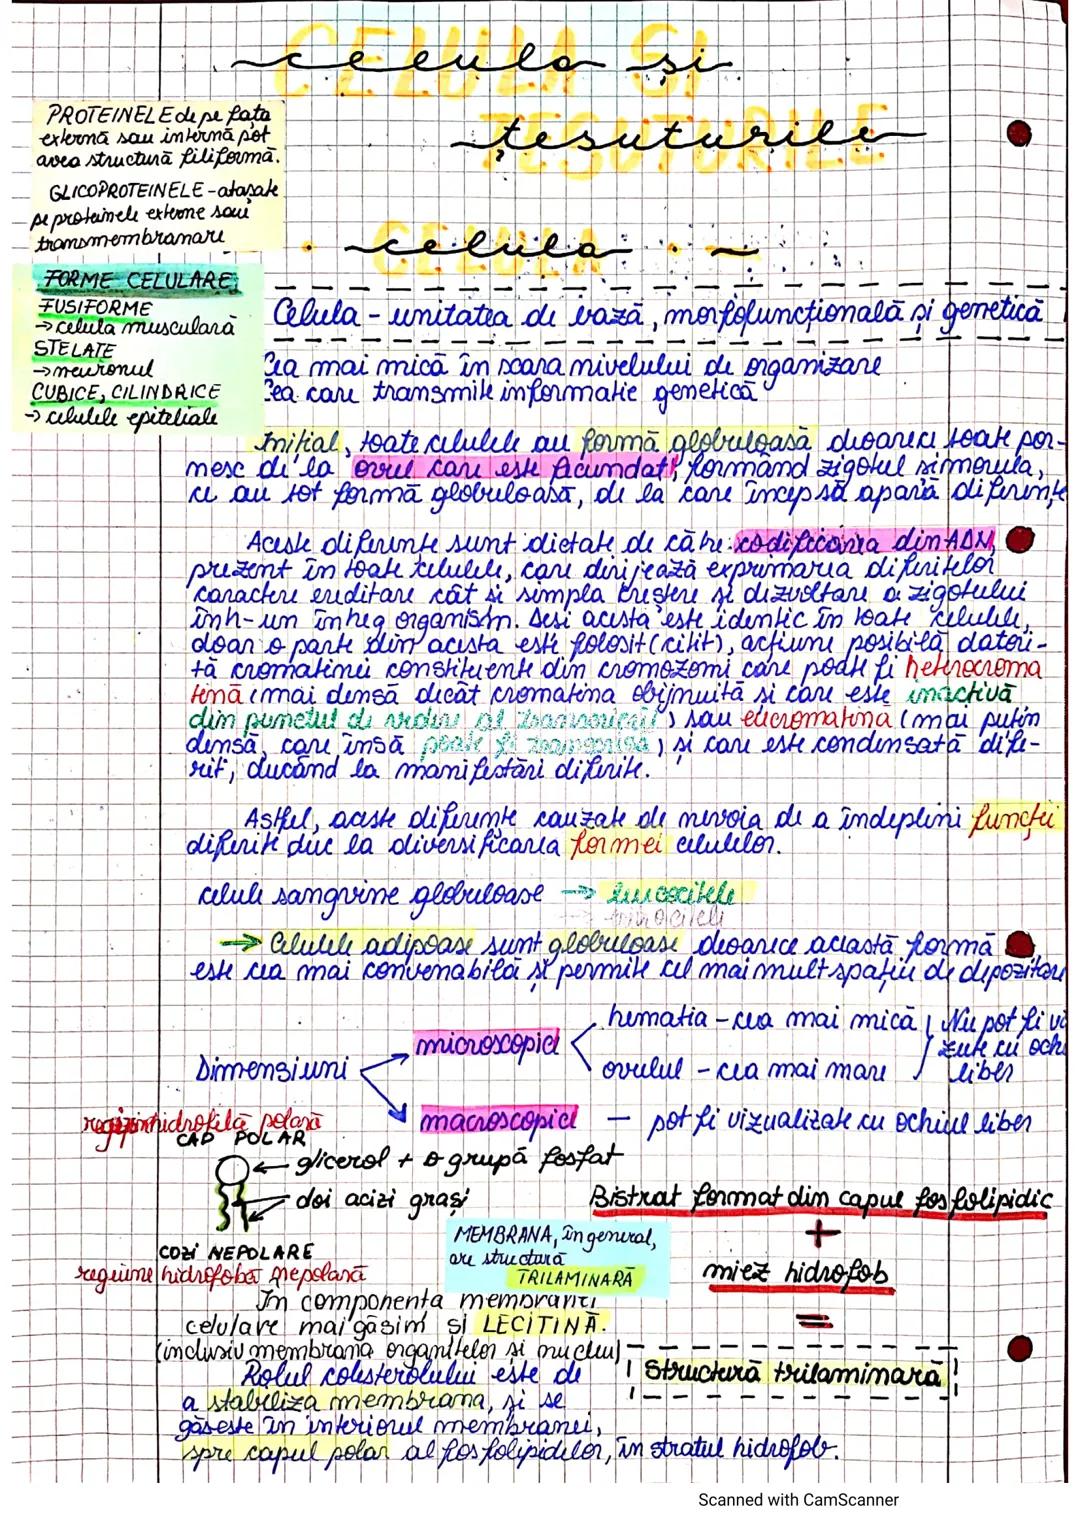 celula și
țesuturile
PROTEINELE de pe fața
externă sau internă pot
avea structură filiformă.
GLICOPROTEINELE - atașate
pe proteinele externe sau
transmembranare
celula
FORME CELULARE:
FUSIFORME
→ celula musculară
STELATE
→ neuronul
CUBICE, CILINDRICE
→ celulele epiteliale
Celula - unitatea de bază, morfofuncțională și genetică
Cea mai mică în scara nivelului de organizare
Cea care transmite informație genetică
Inițial, toate celulele au formă globuloasă deoarece toate por-
nesc de la ovul care este fecundat, formând zigotul și morula,
ce au tot formă globuloasă, de la care încep să apară diferențe
Aceste diferențe sunt dictate de către codificarea din ADN,
prezent în toate celulele, care dirijează exprimarea diferitelor
caractere ereditare cât și simpla creștere și dezvoltare a zigotului
într-un întreg organism. Deși acesta este identic în toate celulele,
doar o parte din acesta este folosit (citit), acțiune posibilă datori-
tă cromatinei constituente din cromozomi care poate fi heterocroma
tină (mai densă decât cromatina obijnuită și care este inactivă
din punctul de vedere al transcrierii) sau eucromatină (mai puțin
densă, care însă poate fi transcrisă) și care este condensată dife-
rit, ducând la manifestări diferite.
Astfel, aceste diferențe cauzate de nevoia de a îndeplini funcții
diferite duc la diversificarea formei celulelor.
celule sangvine globuloase → leucocitele
→ Celulele adipoase sunt globuloase deoarece această formă
este cea mai convenabilă și permite cel mai mult spațiu de depozitare
Dimensiuni
microscopice
hematia - cea mai mică
ovulul - cea mai mare
Nu pot fi vă
zute cu och
liber
macroscopice - pot fi vizualizate cu ochiul liber
hidrofilă polară
CAP POLAR
glicerol + o grupă fosfat
doi acizi grași
COZI NEPOLARE
regiune hidrofobă nepolară
Bistrat format din capul fosfolipidic
+
miez hidrofob
=
Structură trilaminară
MEMBRANA, în general,
are structură
TRILAMINARĂ
În componența membranei
celulare mai găsim și LECITINĂ.
(inclusiv membrana organitelor și nucleu)
Rolul colesterolului este de
a stabiliza membrana, și se
găsește în interiorul membranei,
spre capul polar al fosfolipidelor, în stratul hidrofob.
Scanned with CamScanner